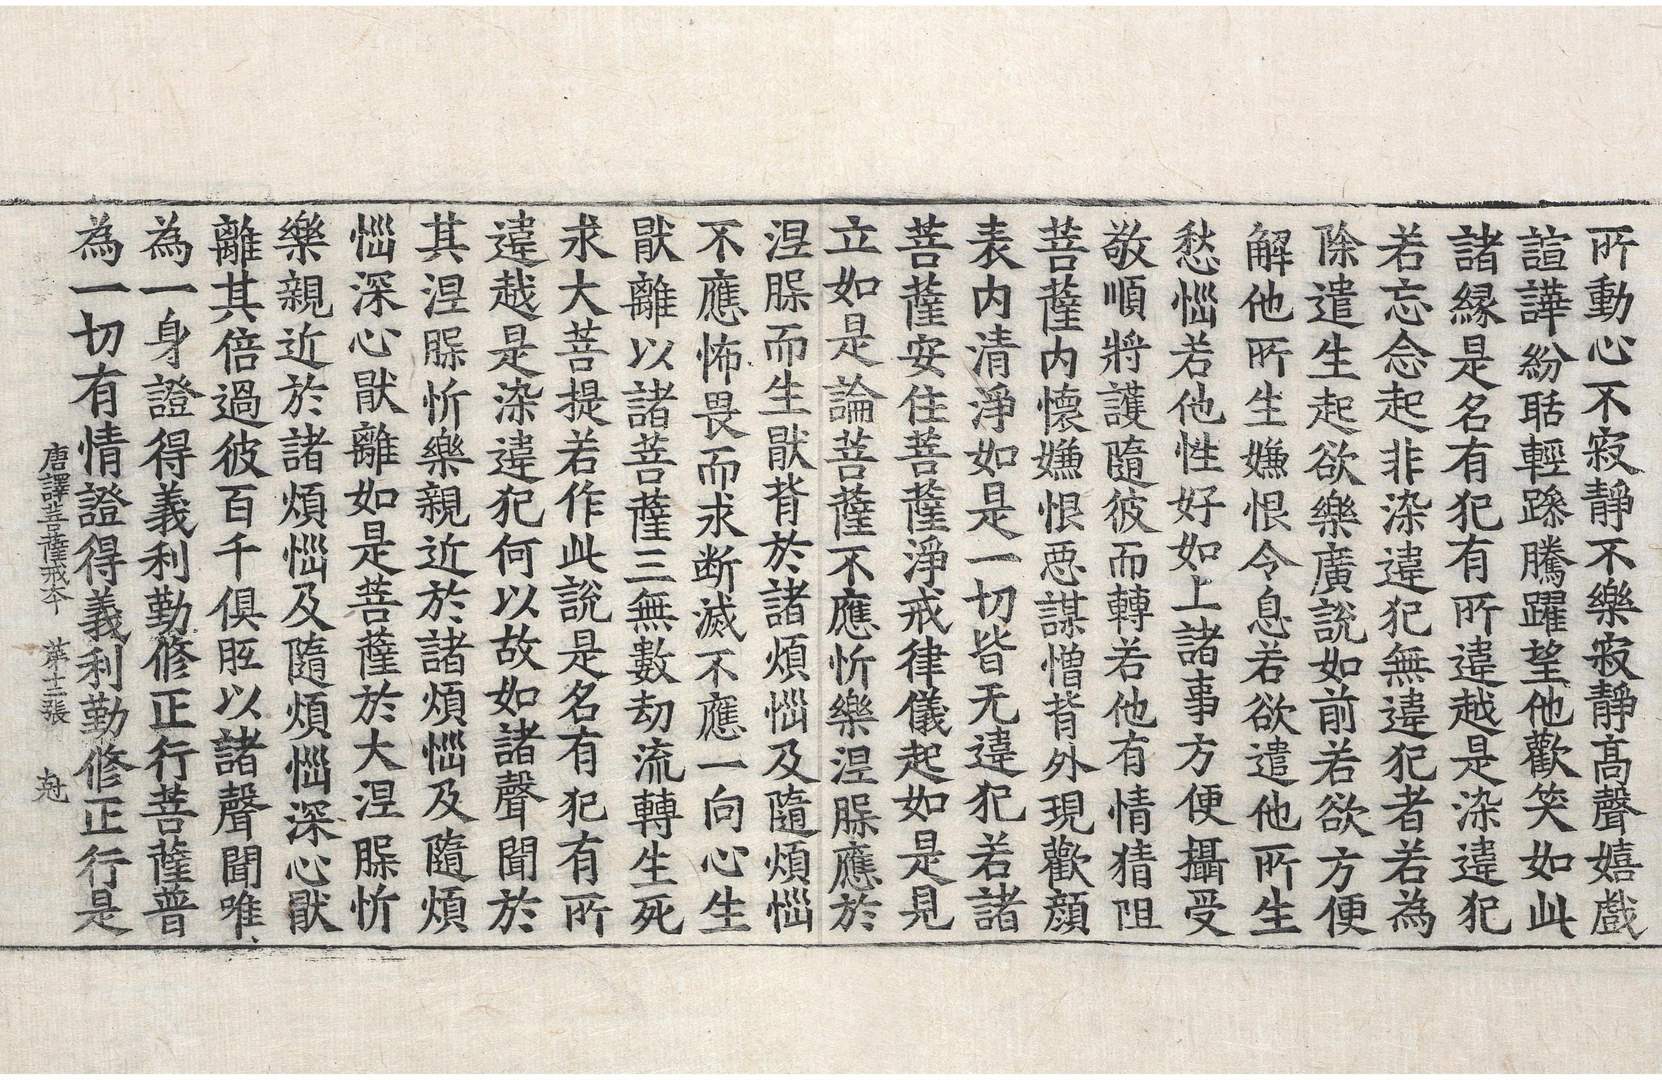 所動心不寂靜不樂寂靜高聲嬉戲
諠譁紛聒輕躁騰躍望他歡笑如此
諸緣是名有犯有所違越是染違犯
若忘念起非染違犯無違犯者若為
除遣生起欲樂廣說如前若欲方便
解他所生嫌恨令息若欲遣他所生
愁惱若他性好如上諸事方便攝受
敬順將護隨彼而轉若他有情猜阻
菩薩內懷嫌恨惡謀憎背外現歡顏
表內清淨如是一切皆无違犯若諸
菩薩安住菩薩淨戒律儀起如是見
立如是論菩薩不應忻樂涅槃應於
涅槃而生猒背於諸煩惱及隨煩惱
不應怖畏而求断滅不應一向心生
猒離以諸菩薩三無數劫流轉生死
求大菩提若作此說是名有犯有所
違越是染違犯何以故如諸聲聞於
其涅槃忻樂親近於諸煩惱及隨煩
惱深心猒離如是菩薩於大涅槃忻
樂親近於諸煩惱及隨煩惱深心猒
離其倍過彼百千俱胝以諸聲聞唯
為一身證得義利勤修正行菩薩普
為一切有情證得義利勤修正行是
唐譯菩薩戒本 第十二張